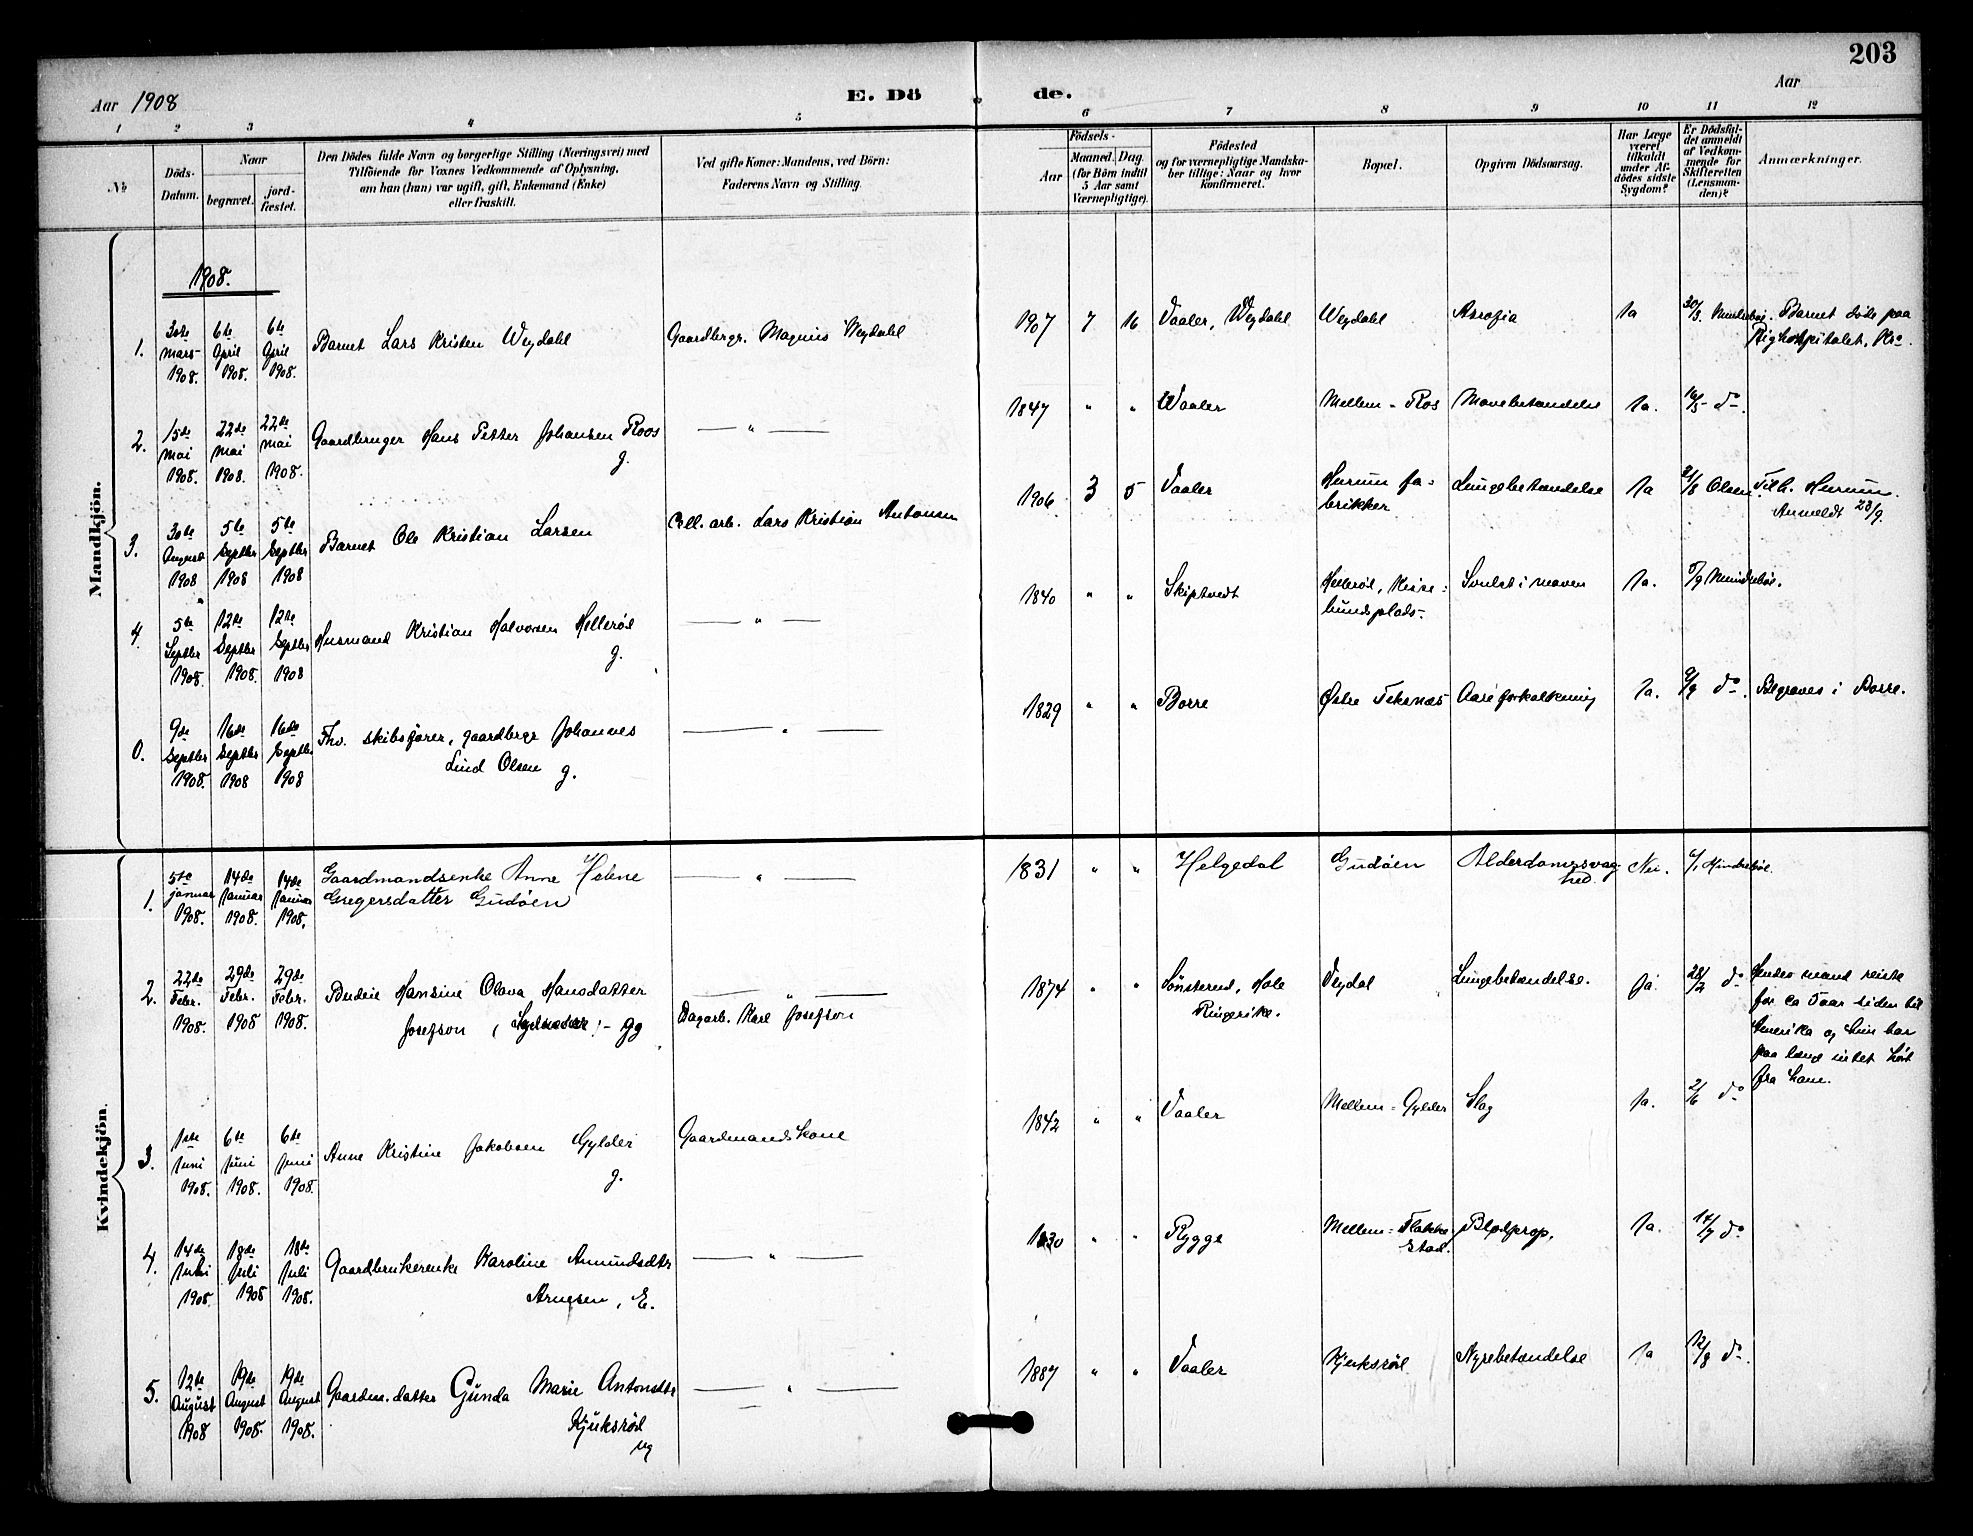 203
Aar 1908
E. Dö
de.
Aar
1 2 3 4 5 6 7 8 9 10 11 12
№
Döds-
Datum.
Naar
begravet.
jord-
fæstet.
Den Dödes fulde Navn og borgerlige Stilling (Næringsvei) med
Tilföiende for Voxnes Vedkommende af Oplysning,
om han (hun) var ugift, gift, Enkemand (Enke)
eller fraskilt.
Ved gifte Koner: Mandens, ved Börn:
Faderens Navn og Stilling.
Födsels-
Aar
Maaned. Dag.
(for Börn indtil
5 Aar samt
Værnepligtige).
Födested
og for værnepligtige Mandska-
ber tillige: Naar og hvor
konfirmeret.
Bopæl.
Opgiven Dödsaarsag.
Har Læge
været
tilkaldt
under Af-
dödes sidste
Sygdom?
Er Dödsfal-
det anmeldt
af Vedkom-
mende for
Skifteretten
(Lensman-
den)?
Anmærkninger.
Mandkjön.
1908.
1.
30te
Mars
1908.
6te
April
1908.
6te
April
1908.
Barnet Lars Kristen Weydahl
Gaardbrgr. Magnus Weydahl
1907 7 16
Vaaler, Weydahl
Weydahl
Ja
30/3
Barnet döde paa
Righospitalet, Kra.
2.
15de
Mai
1908.
22de
Mai
1908.
22de
Mai
1908.
Gaardbruger Hans Petter Johansen Roos
g.
— " —
1847 " "
Waaler
Mellem-Ros
Mavebetændelse
Ja.
16/5 do.
3.
30te
August
1908
5te
Septbr
1908
5te
Septbr
1908
Barnet Ole Kristian Larsen
Cell. arb. Lars Kristian Antonsen
1906 3 5
Vaaler
Hurum fa-
brikker
Lungebetændelse
Ja
Olsen
Filh. Hurum.
Anmeldt 23/9.
4.
5te
Septbr
1908.
12te
Septbr
1908.
12te
Septbr
1908
Husmand Kristian Halvorsen Helleröd
g.
— " —
1840 " "
Skiptvedt
Svulst i maven
Ja.
5/9
0.
9de
Septbr
1908.
16de
Septbr
1908
16de
Septbr
1908
Fhv. skibsförer, gaardbrgr Johannes
Lind Olsen g.
— " —
1829 " "
Borre
Østre Teksnæs
Aareforkalkning
Ja.
9/9 do.
Begraves i Borre.
Kvindekjön.
1.
5te
januar
1908.
14de
Januar
1908.
14de
Januar
1908.
Gaardmandsenke Anne Helene
Gregersdatter Gudöen
— " —
1831 " "
Helgedal
Gudöen
Alderdomssvag-
hed.
Nei.
2.
22de
Febr.
1908.
29de
Febr.
1908
29de
Febr.
1908.
Budeie Hansine Olava Hansdatter
Josefson
gg
— " —
Dagarb. Karl Josefson
1874 " "
Sönsterud, Hole
Ringerike.
Veydal
Lungebetændelse.
Ja.
22/2 do
Hendes mand reiste
for ca 5 aar siden til
Amerika og hun har
paa længe intet hört
fra ham.
3.
1ste
Juni
1908.
6te
Juni
1908.
6te
Juni
1908.
Anne Kristine Jakobsen Gylder
g.
Gaardmandskone
1842 " "
Vaaler
Mellem-Gylder
Slag
Ja.
2/6 do
4.
14de
Juli
1908.
18de
Juli
1908
18de
Juli
1908.
Gaardbrukerenke Karoline Amundsdtr
Arnesen, E.
— " —
1830 " "
Rygge
Mellem-Flakke
stad.
Blodprop.
Ja.
14/7 do
5.
12te
August
1908
19de
August
1908.
19de
August
1908.
Gaardm.datter Gunda Marie Antonsdtr
Kjuksröd
ug
— " —
1887 " "
Vaaler
Kjuksröd
Nyrebetændelse
Ja
12/8 do.